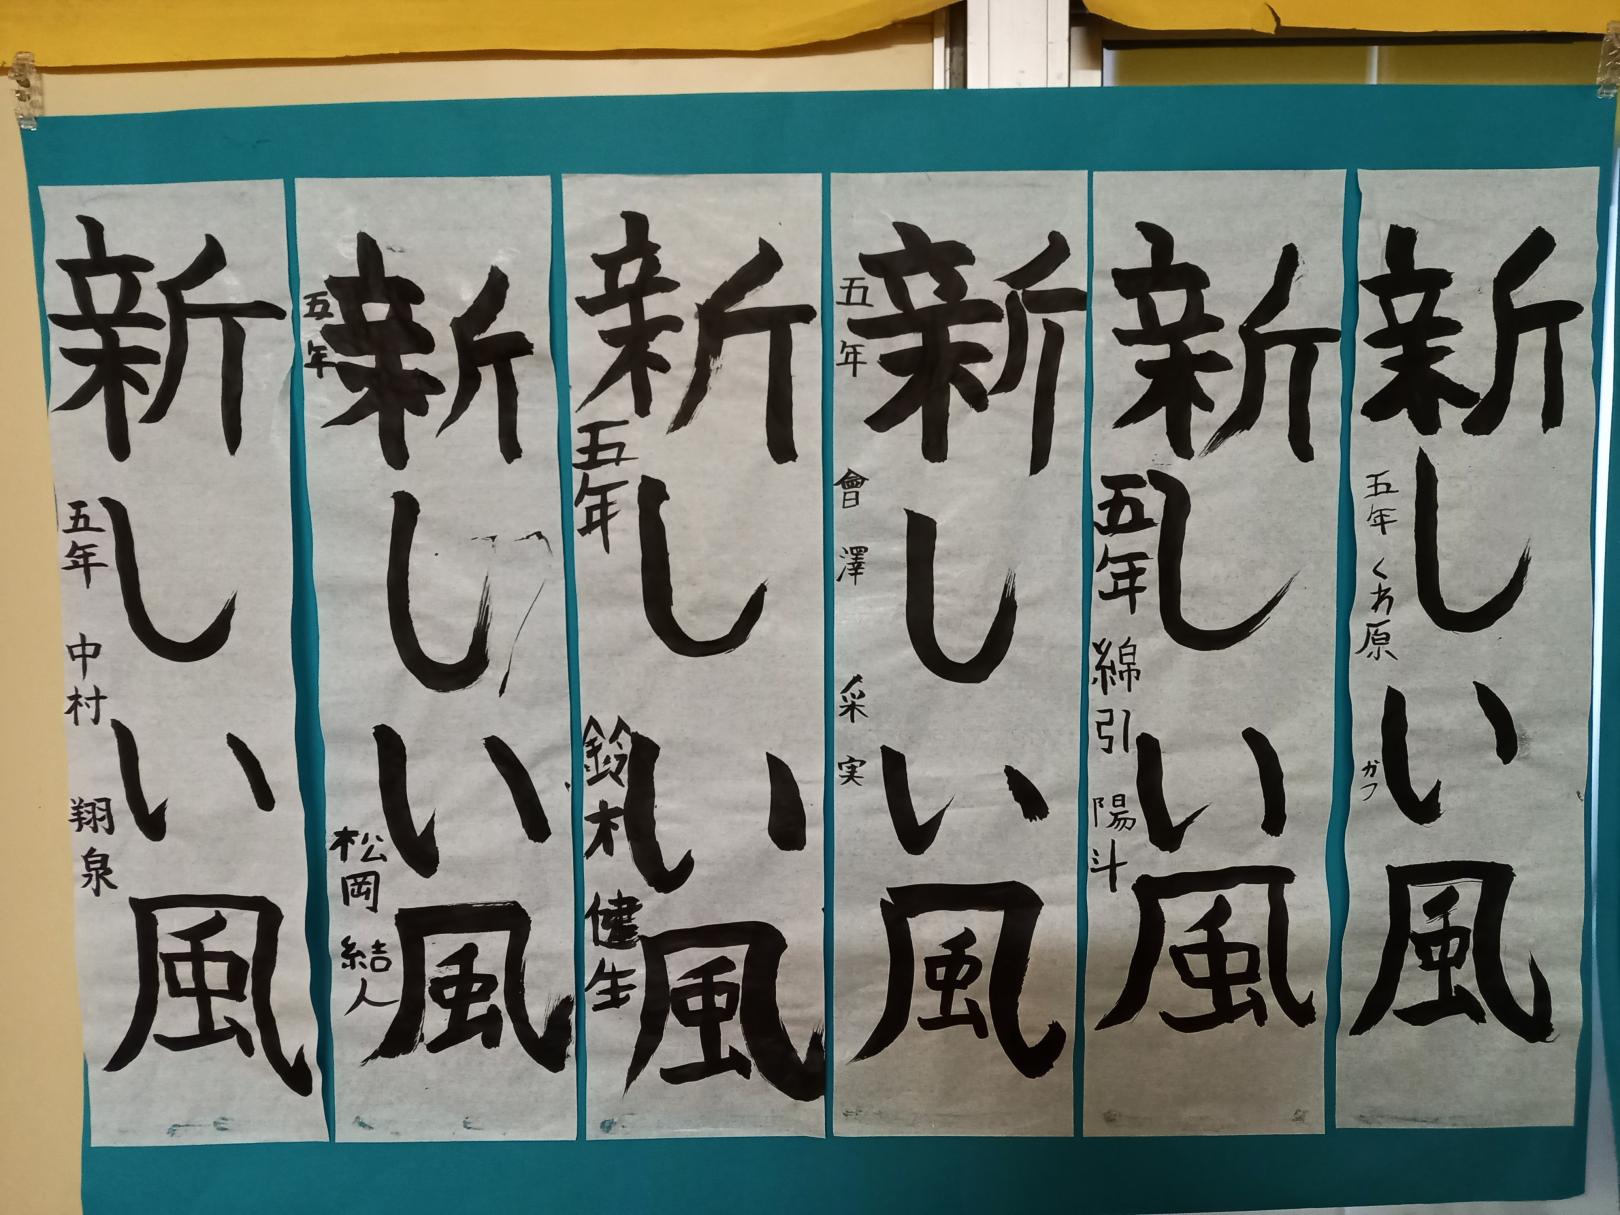 新しい風
五年 くわ原 ガフ
新しい風
五年 綿引 陽斗
新しい風
五年 會澤 采実
新しい風
五年 鈴木 健生
新しい風
五年 松岡 結人
新しい風
五年 中村 翔泉